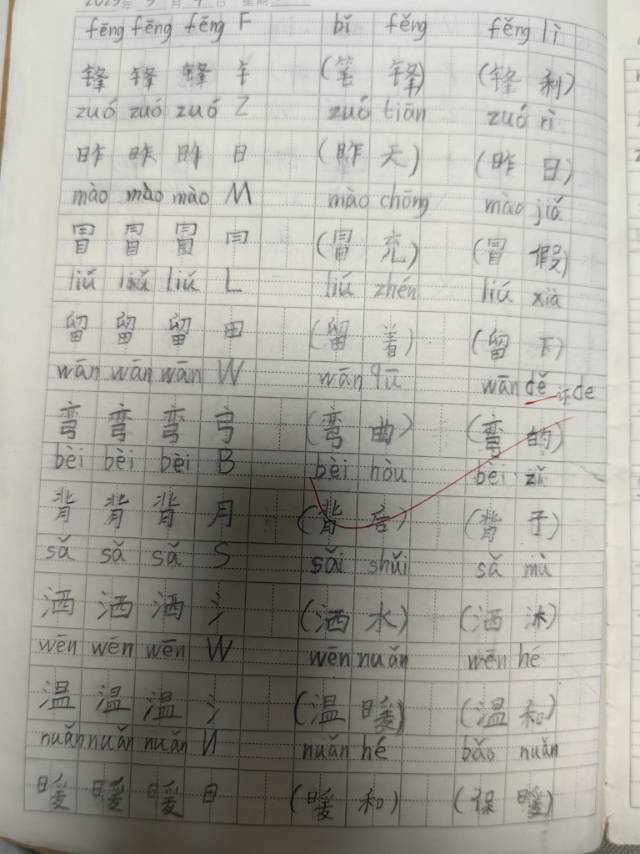 2023年3月9日 星期
fēng fēng fēng F bǐ fěng fěng lì
锋 锋 锋 钅 (笔 锋) (锋 利)
zuó zuó zuó Z zuó tiān zuó rì
昨 昨 昨 日 (昨 天) (昨 日)
mào mào mào M mào chōng mào jiǎ
冒 冒 冒 (冒 充) (冒 假)
liú liú liú L liú zhén liú xià
留 留 留 田 (留 着) (留 下)
wān wān wān W wān qū wān dě de
弯 弯 弯 弓 (弯 曲) (弯 的)
bèi bèi bèi B bèi hòu bèi zǐ
背 背 背 月 (背 后) (背 子)
sǎ sǎ sǎ S sǎi shuǐ sǎ mù
洒 洒 洒 氵 (洒 水) (洒 沐)
wēn wēn wēn W wēn nuǎn wēn hé
温 温 温 氵 (温 暖) (温 和)
nuǎn nuǎn nuǎn N nuǎn hé bǎo nuǎn
暖 暖 暖 日 (暖 和) (保 暖)